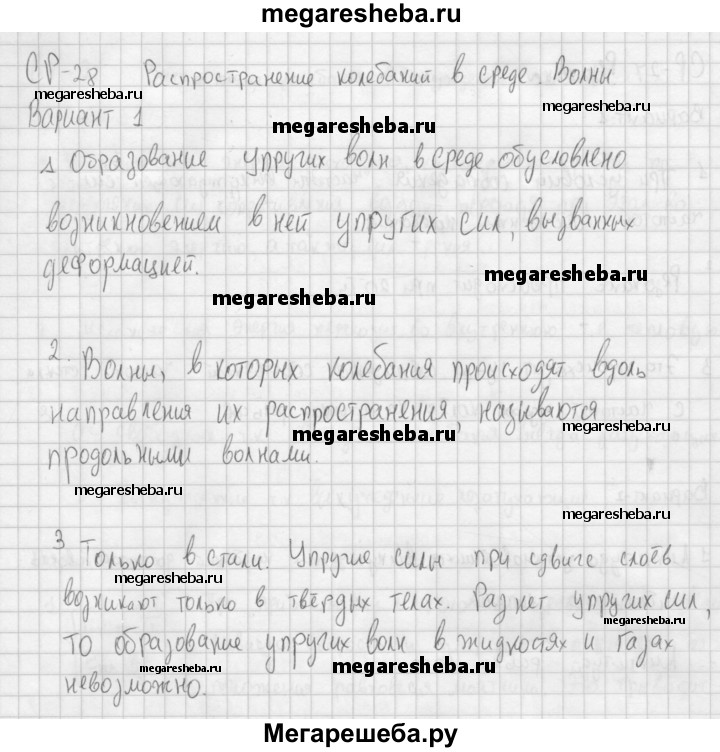 megaresheba.ru
СР-28 Распространение колебаний в среде. Волны
megaresheba.ru
megaresheba.ru
Вариант 1
megaresheba.ru
1 Образование упругих волн в среде обусловлено
возникновением в ней упругих сил, вызванных
деформацией.
megaresheba.ru
megaresheba.ru
2. Волны, в которых колебания происходят вдоль
направления их распространения, называются
megaresheba.ru
продольными волнами.
megaresheba.ru
megaresheba.ru
3 Только в стали. Упругие силы при сдвиге слоёв
megaresheba.ru
возникают только в твёрдых телах. Раз нет упругих сил,
megaresheba.ru
то образование упругих волн в жидкостях и газах
megaresheba.ru
megaresheba.ru
невозможно.
Мегарешеба.ру